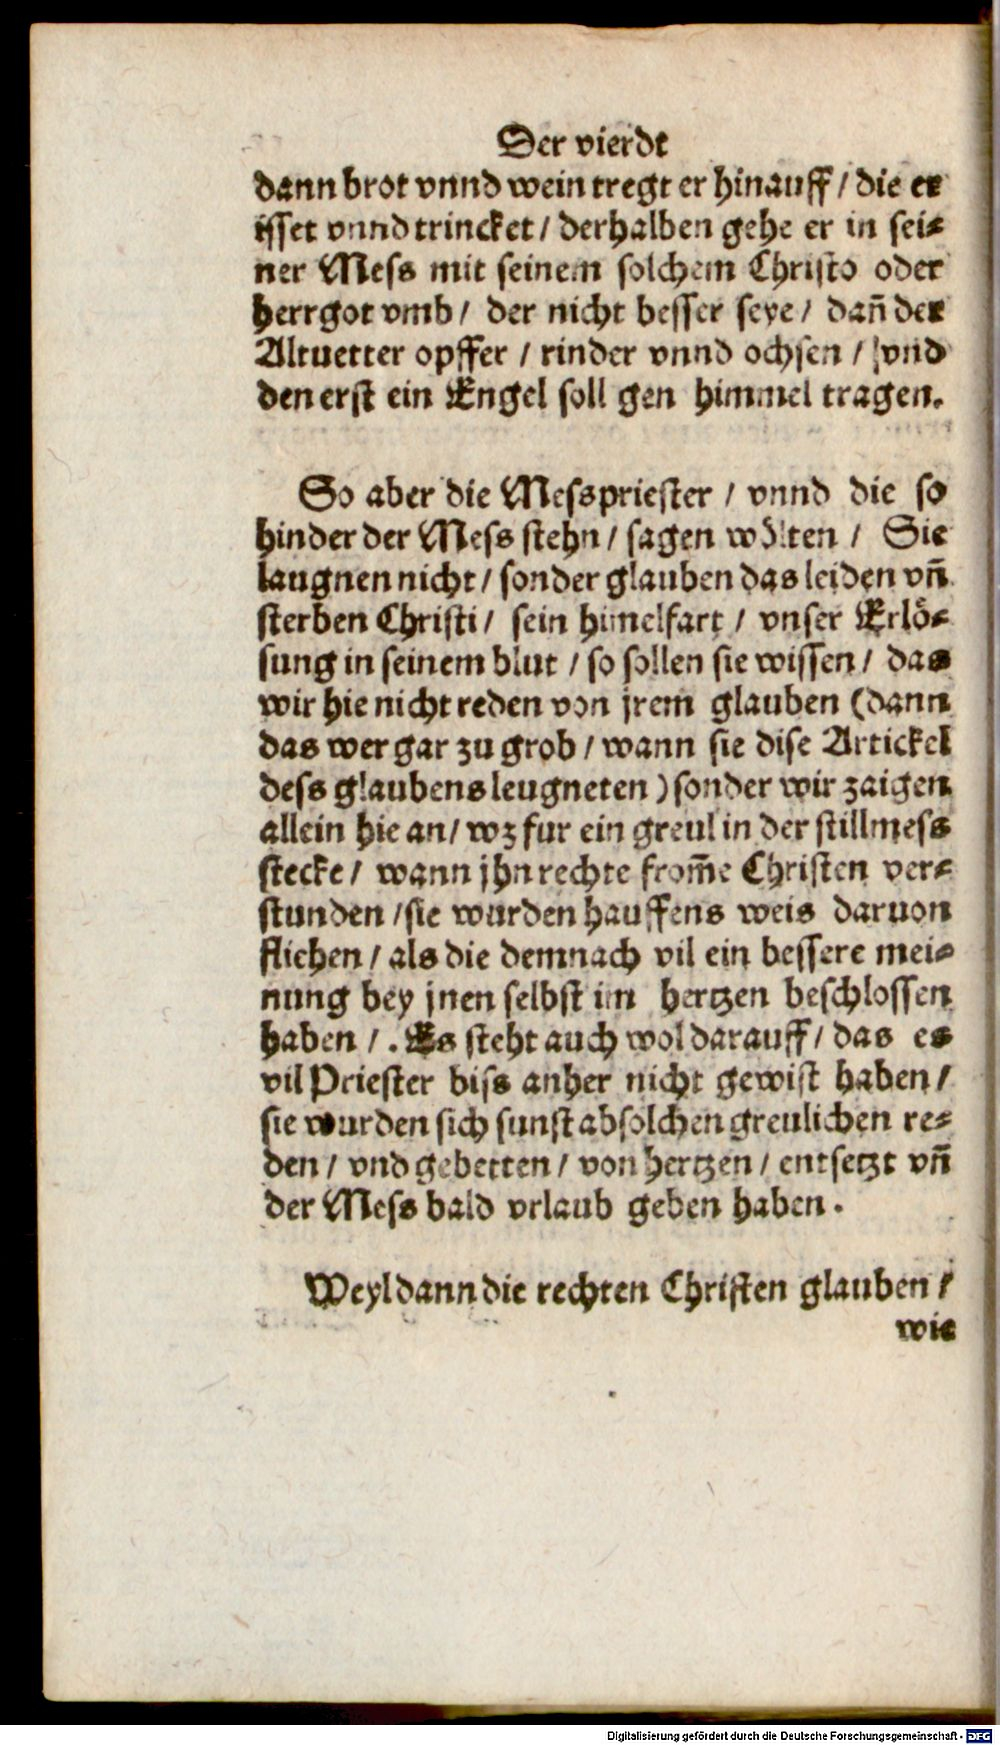 Der vierdt
dann brot vnnd wein tregt er hinauff / die er
isset vnnd trincket / derhalben gehe er in sei⸗
ner Mess mit seinem solchem Christo oder
herrgot vmb / der nicht besser seye / dañ der
Altuetter opffer / rinder vnnd ochsen / vnd
den erst ein Engel soll gen himmel tragen.
So aber die Messpriester / vnnd die so
hinder der Mess stehn / sagen wölten / Sie
laugnen nicht / sonder glauben das leiden vñ
sterben Christi / sein himelfart / vnser Erlö⸗
sung in seinem blut / so sollen sie wissen / das
wir hie nicht reden von jrem glauben (dann
das wer gar zu grob / wann sie dise Artickel
dess glaubens leugneten) sonder wir zaigen
allein hie an / wz fur ein greul in der stillmess
stecke / wann jhn rechte from̃e Christen ver⸗
stunden / sie wurden hauffens weis daruon
fliehen / als die demnach vil ein bessere mei⸗
nung bey jnen selbst im hertzen beschlossen
haben / . Es steht auch wol darauff / das es
vil Priester biss anher nicht gewist haben /
sie wurden sich sunst ab solchen greulichen re⸗
den / vnd gebetten / von hertzen / entsetzt vñ
der Mess bald vrlaub geben haben .
Weyl dann die rechten Christen glauben /
wie
Digitalisierung gefördert durch die Deutsche Forschungsgemeinschaft - DFG